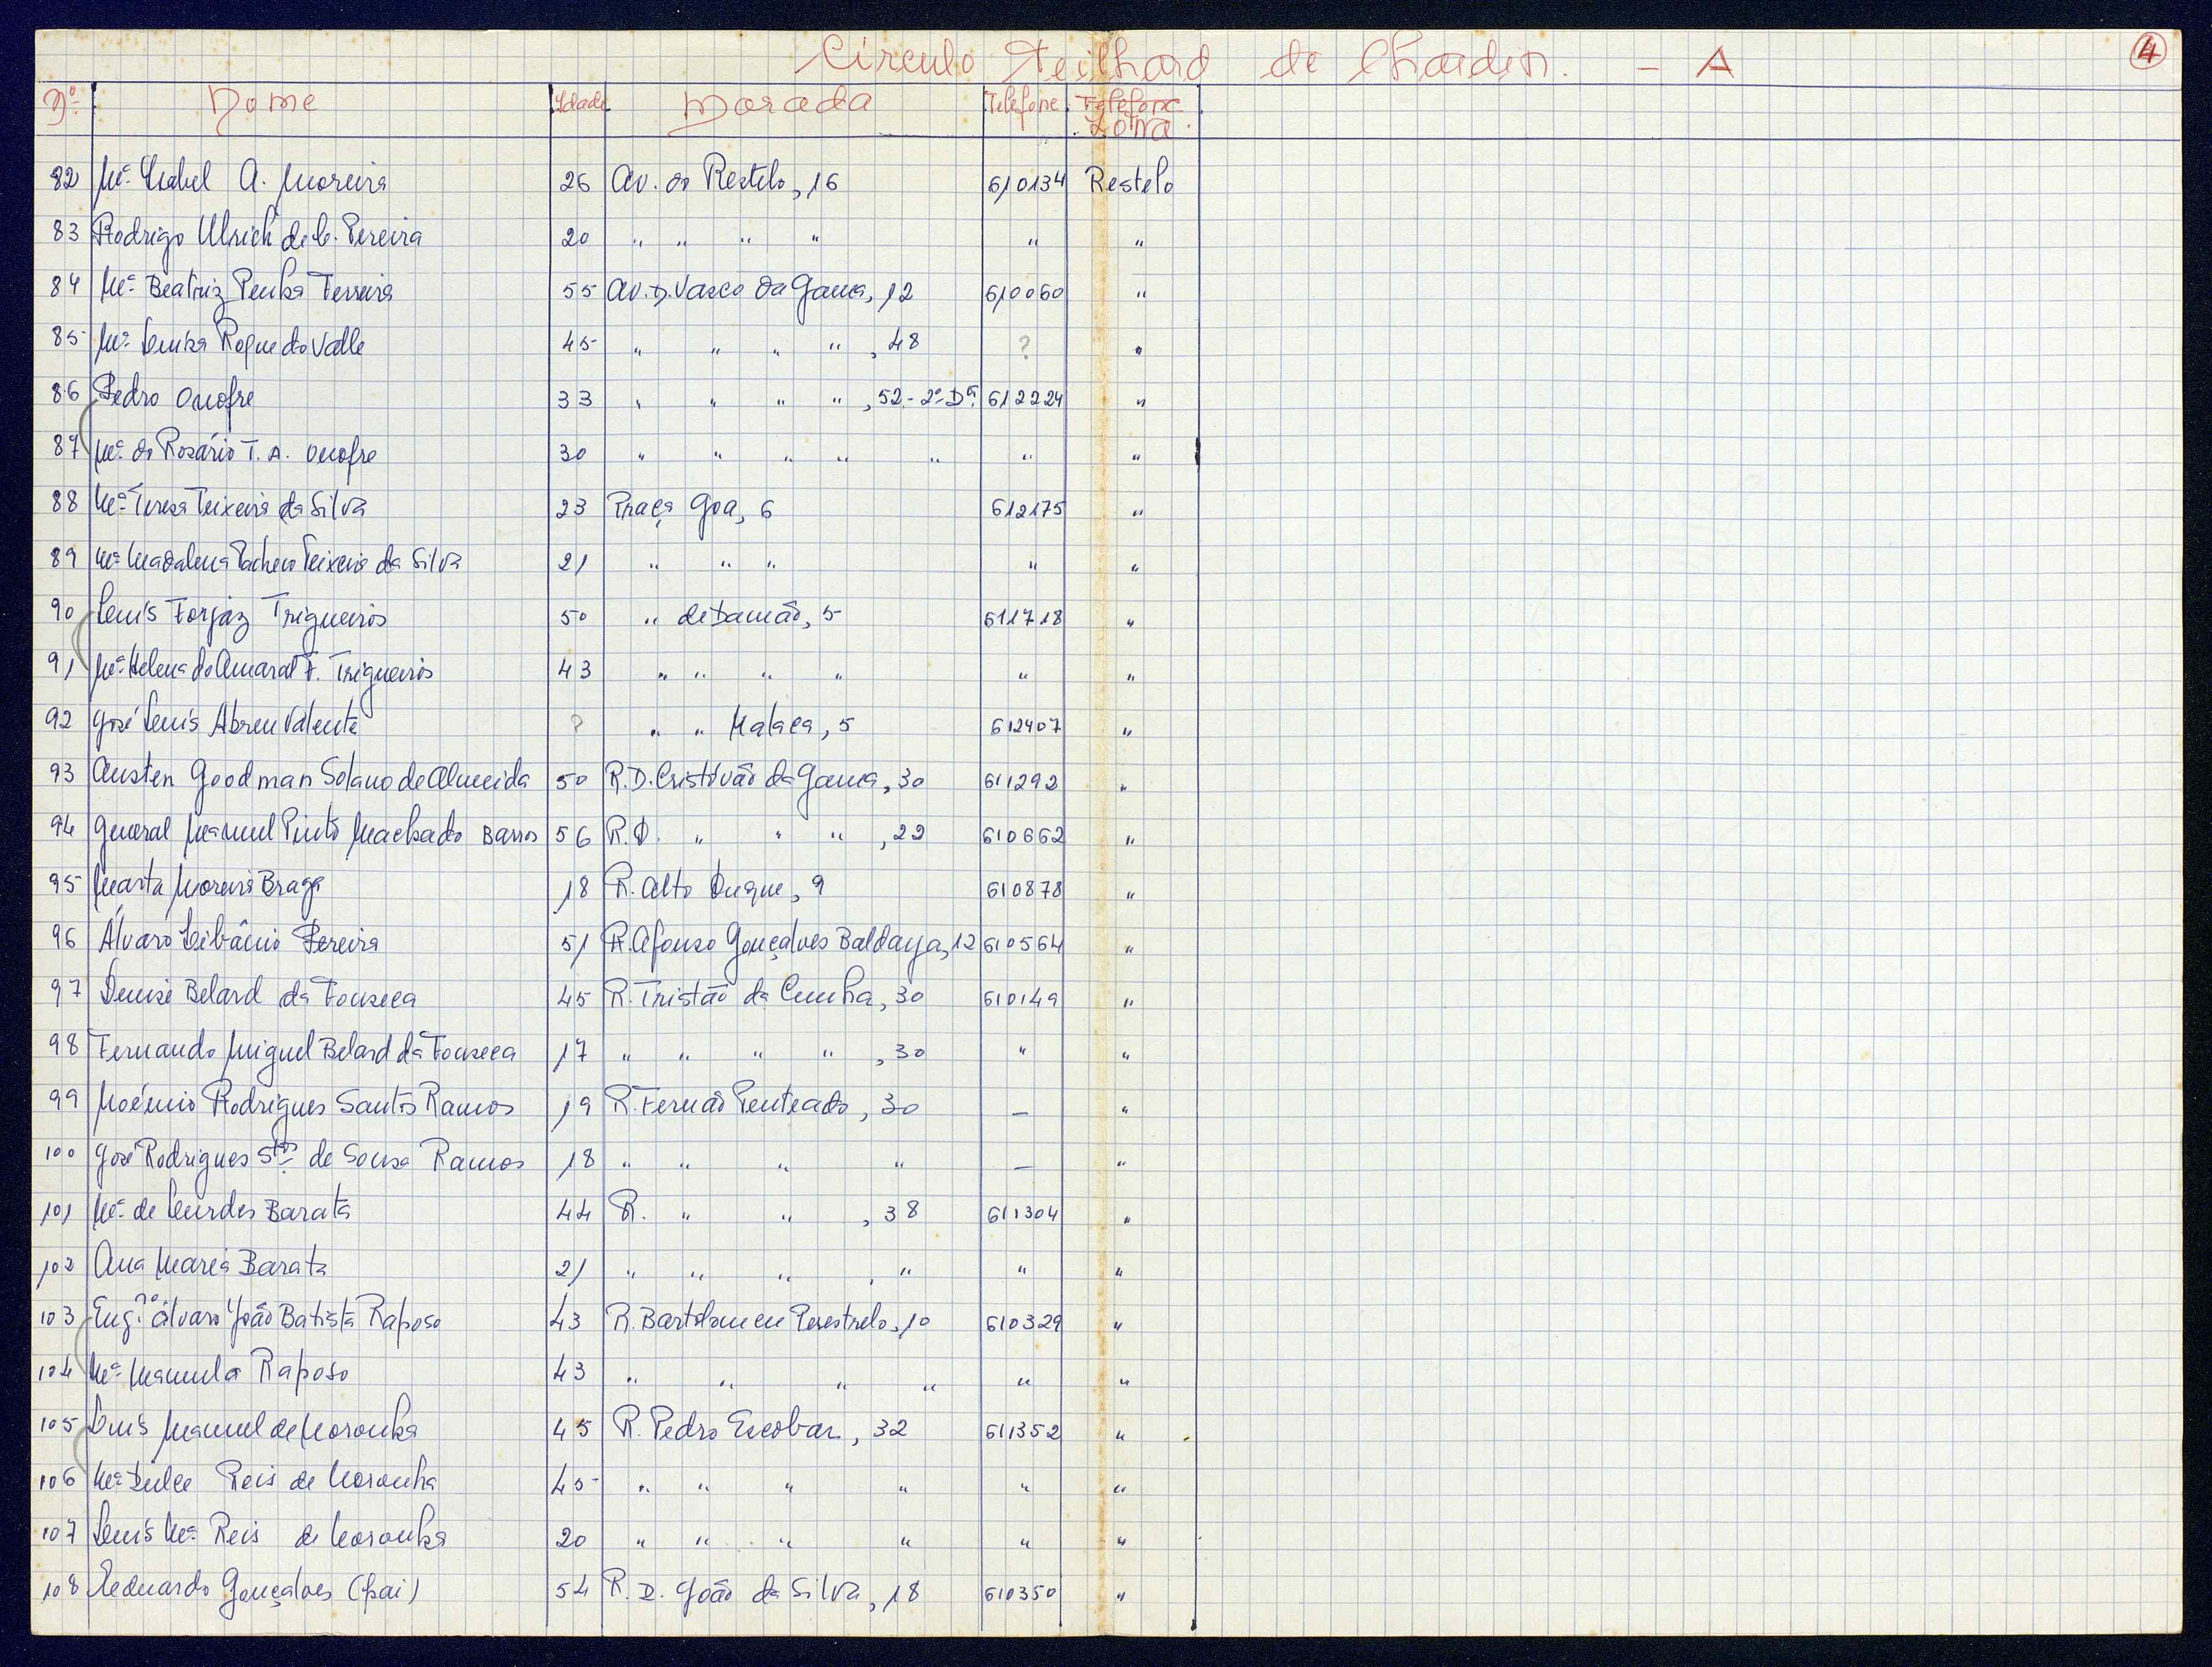 Círculo Teilhard de Chardin. - A
4
Nº Nome Idade Morada Telefone Telefone Zona
82 Mª Isabel A. Moreira 26 Av. do Restelo, 16 610134 Restelo
83 Rodrigo Ulrich de C. Pereira 20 " " " " " "
84 Mª Beatriz Penha Ferreira 55 Av. D. Vasco da Gama, 12 610060 "
85 Mª Luísa Roque do Valle 45 " " " " , 48 ? "
86 Pedro Onofre 33 " " " " , 52-2º Dº 612224 "
87 Mª do Rosário T. A. Onofre 30 " " " " " " "
88 Mª Teresa Teixeira da Silva 23 Praça Goa, 6 612175 "
89 Mª Madalena Pacheco Teixeira da Silva 21 " " " " "
90 Luís Forjaz Trigueiros 50 " de Damão, 5 611718 "
91 Mª Helena do Amaral F. Trigueiros 43 " " " " " "
92 José Luís Abreu Valente ? " " Malaca, 5 612407 "
93 Austen Goodman Solano de Almeida 50 R. D. Cristóvão da Gama, 30 611292 "
94 General Manuel Pinto Machado Barros 56 R. D. " " " , 22 610662 "
95 Marta Moreira Braga 18 R. Alto Duque, 9 610878 "
96 Álvaro Libânio Pereira 51 R. Afonso Gonçalves Baldaya, 12 610564 "
97 Denise Belard da Fonseca 45 R. Tristão da Cunha, 30 610149 "
98 Fernando Miguel Belard da Fonseca 17 " " " " , 30 " "
99 Noémio Rodrigues Santos Ramos 19 R. Fernão Penteado, 30 — "
100 José Rodrigues Stos de Sousa Ramos 18 " " " " — "
101 Mª de Lurdes Barata 44 R. " " , 38 611304 "
102 Ana Maria Barata 21 " " " , " " "
103 Engº Álvaro João Batista Raposo 43 R. Bartolomeu Perestrelo, 10 610329 "
104 Mª Manuela Raposo 43 " " " " " "
105 Luís Manuel de Noronha 45 R. Pedro Escobar, 32 611352 "
106 Mª Dulce Reis de Noronha 45 " " " " " "
107 Luís Mª Reis de Noronha 20 " " " " " "
108 Leduardo Gonçalves (pai) 54 R. D. João da Silva, 18 610350 "